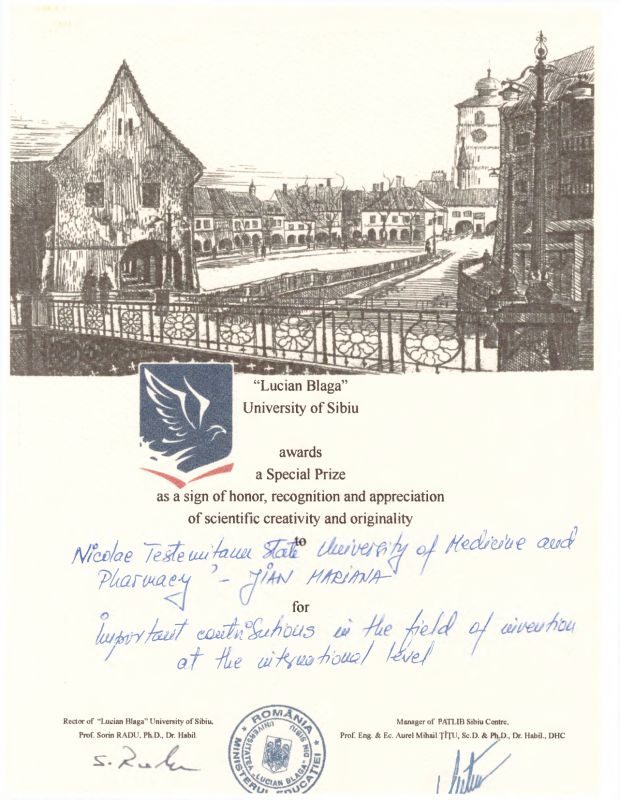 "Lucian Blaga"
University of Sibiu
awards
a Special Prize
as a sign of honor, recognition and appreciation
of scientific creativity and originality
to
Nicolae Testemitanu State University of Medicine and
Pharmacy - JIAN MARIANA
for
Important contributions in the field of invention
at the international level
Rector of "Lucian Blaga" University of Sibiu,
Prof. Sorin RADU, Ph.D., Dr. Habil.
Manager of PATLIB Sibiu Centre,
Prof. Eng. & Ec. Aurel Mihail ŢÎŢU, Sc.D. & Ph.D., Dr. Habil., DHC
S. Radu
ROMÂNIA
MINISTERUL EDUCAȚIEI
UNIVERSITATEA "LUCIAN BLAGA" DIN SIBIU